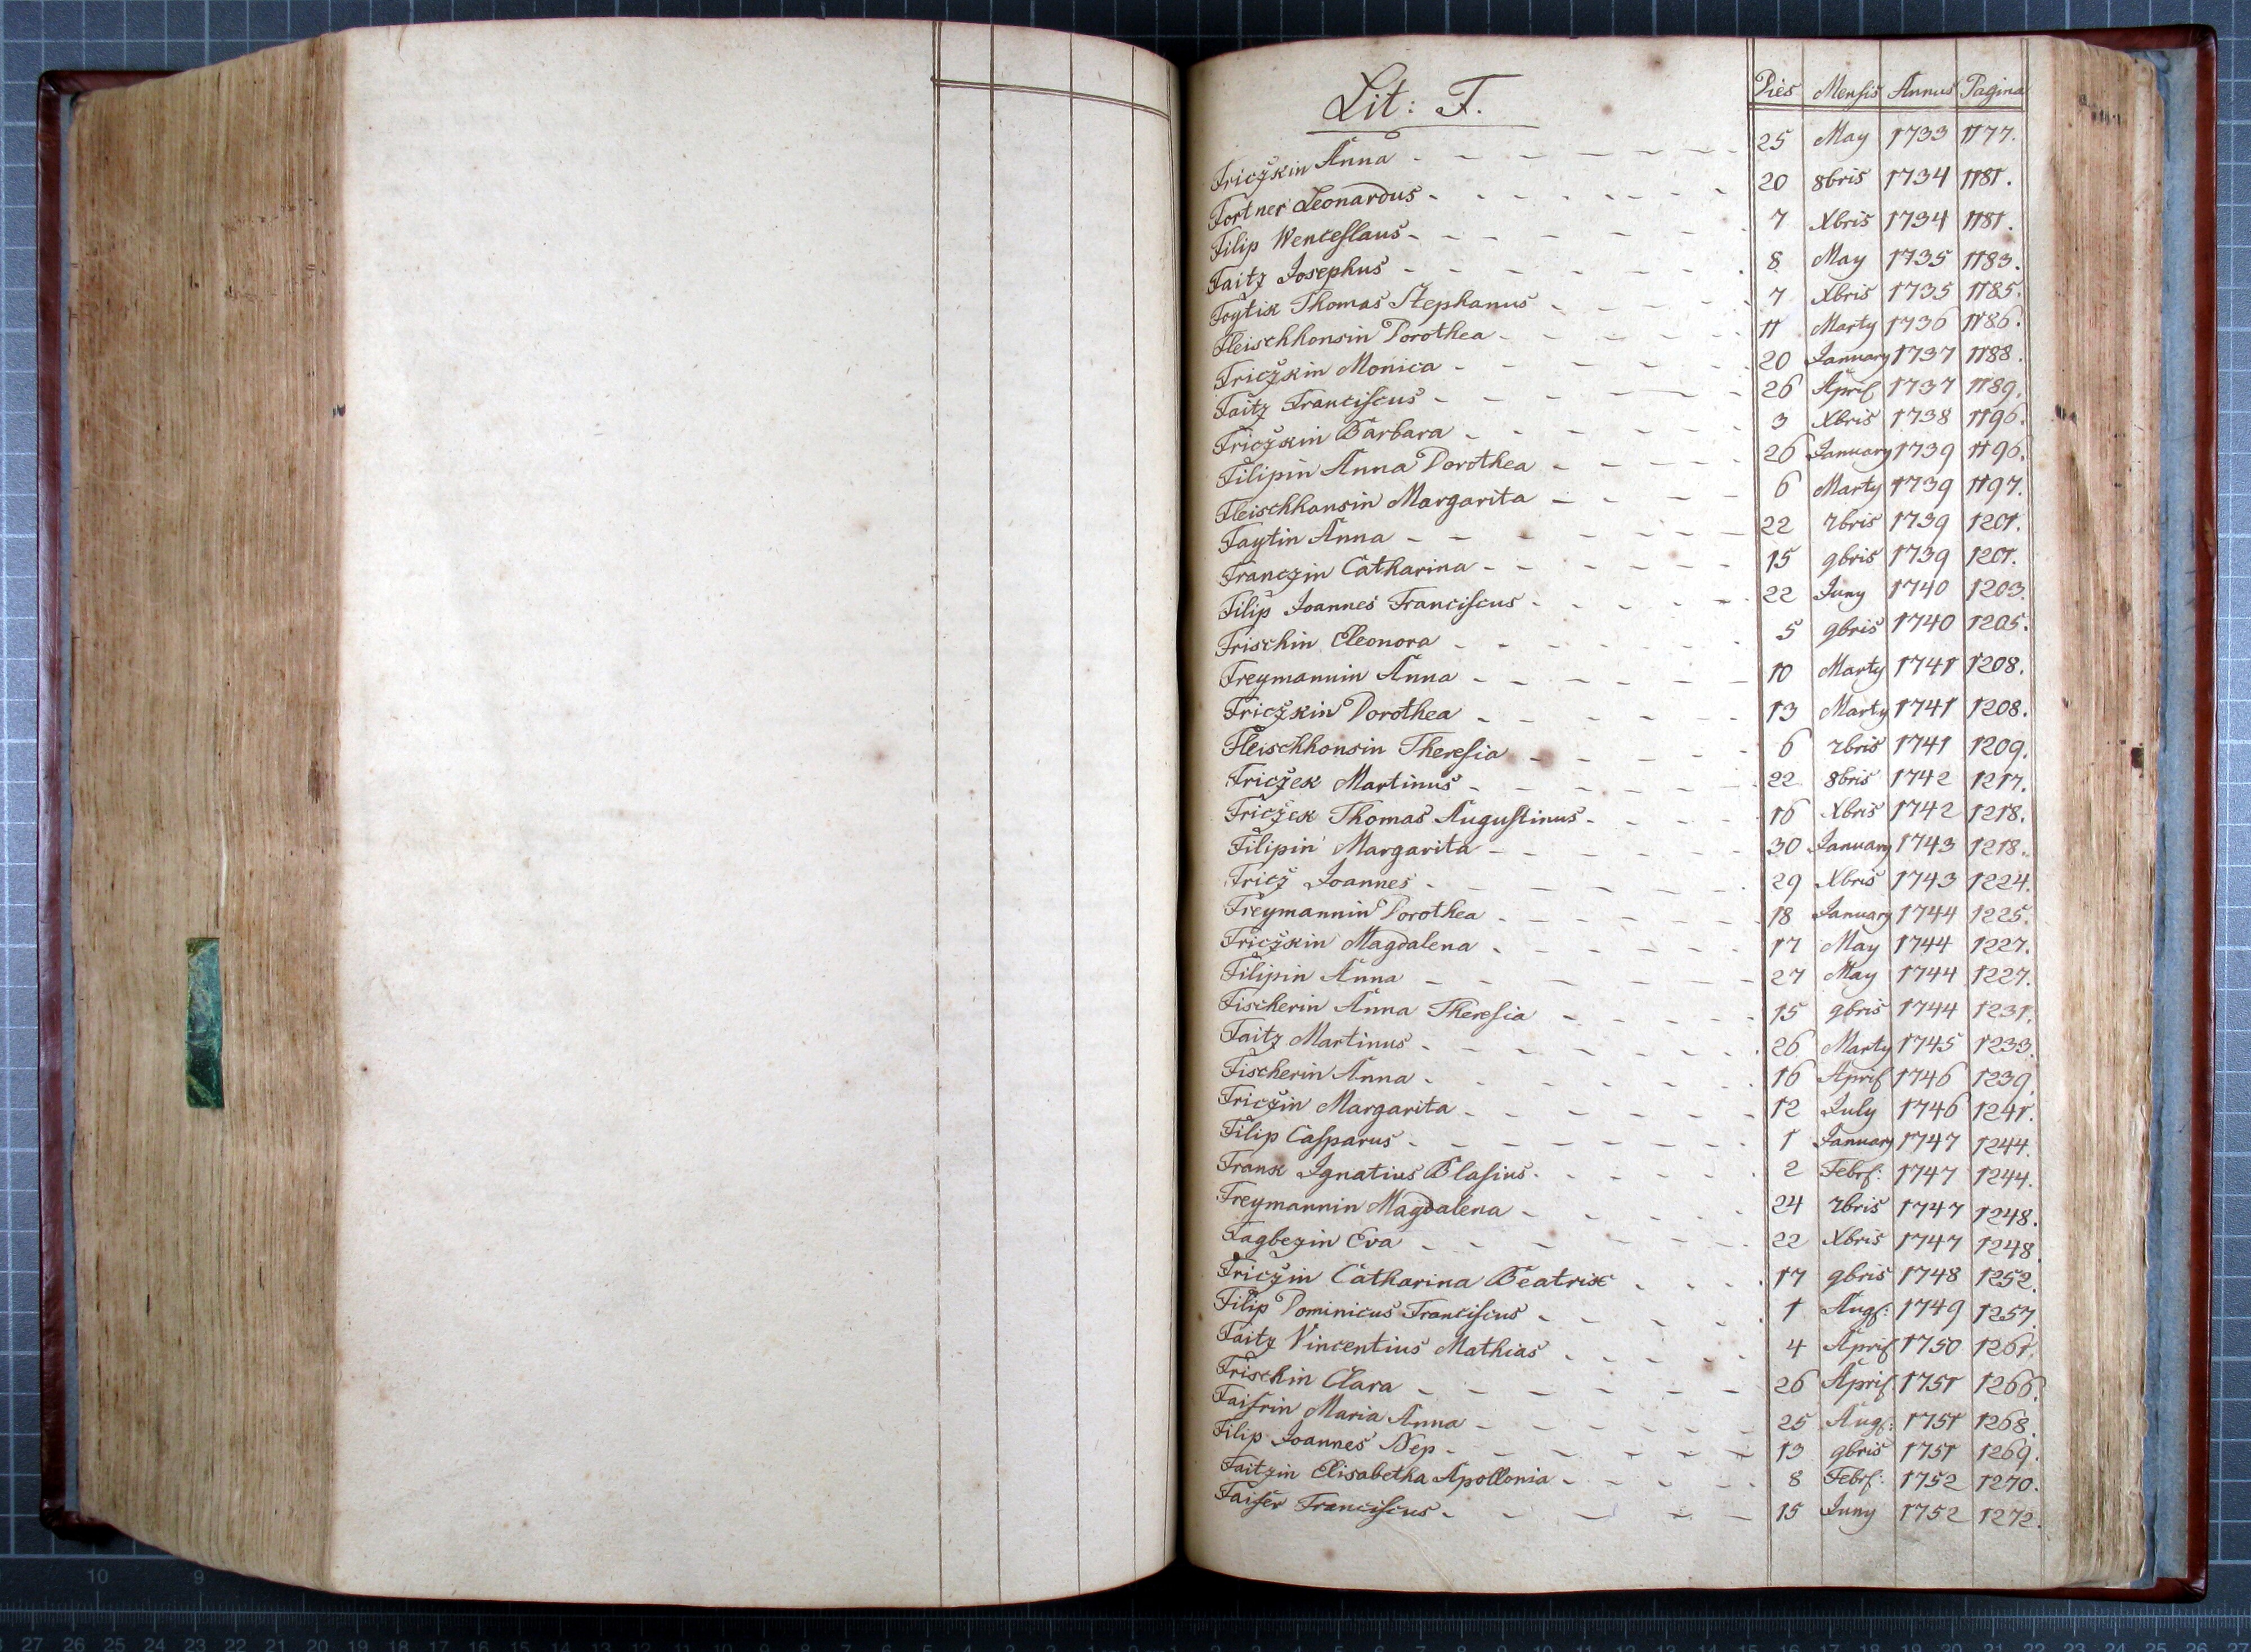 Lit: F.
Dies Mensis Annus Pagina
Fričzkin Anna 25 May 1733 1177.
Fortner Leonardus 20 8bris 1734 1181.
Filip Wenceslaus 7 Xbris 1734 1181.
Faitz Josephus 8 May 1735 1183.
Foytik Thomas Stephanus 7 Xbris 1735 1185.
Fleischhonsin Dorothea 11 Marty 1736 1186.
Fričzkin Monica 20 January 1737 1188.
Faitz Franciscus 26 April 1737 1189.
Fričzkin Barbara 3 Xbris 1738 1196.
Filipin Anna Dorothea 26 January 1739 1196.
Fleischhansin Margarita 6 Marty 1739 1197.
Faytin Anna 22 7bris 1739 1201.
Franczin Catharina 15 9bris 1739 1201.
Filip Joannes Franciscus 22 Juny 1740 1203.
Frischin Eleonora 5 9bris 1740 1205.
Freymannin Anna 10 Marty 1741 1208.
Fričzkin Dorothea 13 Marty 1741 1208.
Fleischhonsin Theresia 6 7bris 1741 1209.
Fričzek Martinus 22 8bris 1742 1217.
Fričzek Thomas Augustinus 16 Xbris 1742 1218.
Filipin Margarita 30 January 1743 1218.
Fričz Joannes 29 Xbris 1743 1224.
Freymannin Dorothea 18 January 1744 1225.
Fričzkin Magdalena 17 May 1744 1227.
Filipin Anna 27 May 1744 1227.
Fischerin Anna Theresia 15 9bris 1744 1231.
Faitz Martinus 26 Marty 1745 1233.
Fischerin Anna 16 April 1746 1239.
Fričzin Margarita 12 July 1746 1241.
Filip Casparus 1 January 1747 1244.
Frank Ignatius Blasius 2 Febr: 1747 1244.
Freymannin Magdalena 24 7bris 1747 1248.
Fagbezin Eva 22 Xbris 1747 1248.
Fričzin Catharina Beatrix 17 9bris 1748 1252.
Filip Dominicus Franciscus 1 Aug: 1749 1257.
Faitz Vincentius Mathias 4 April 1750 1261.
Frischin Clara 26 April 1751 1266.
Faisrin Maria Anna 25 Aug: 1751 1268.
Filip Joannes Nep. 13 9bris 1751 1269.
Faitzin Elisabetha Apollonia 8 Febr: 1752 1270.
Faiser Franciscus 15 Juny 1752 1272.